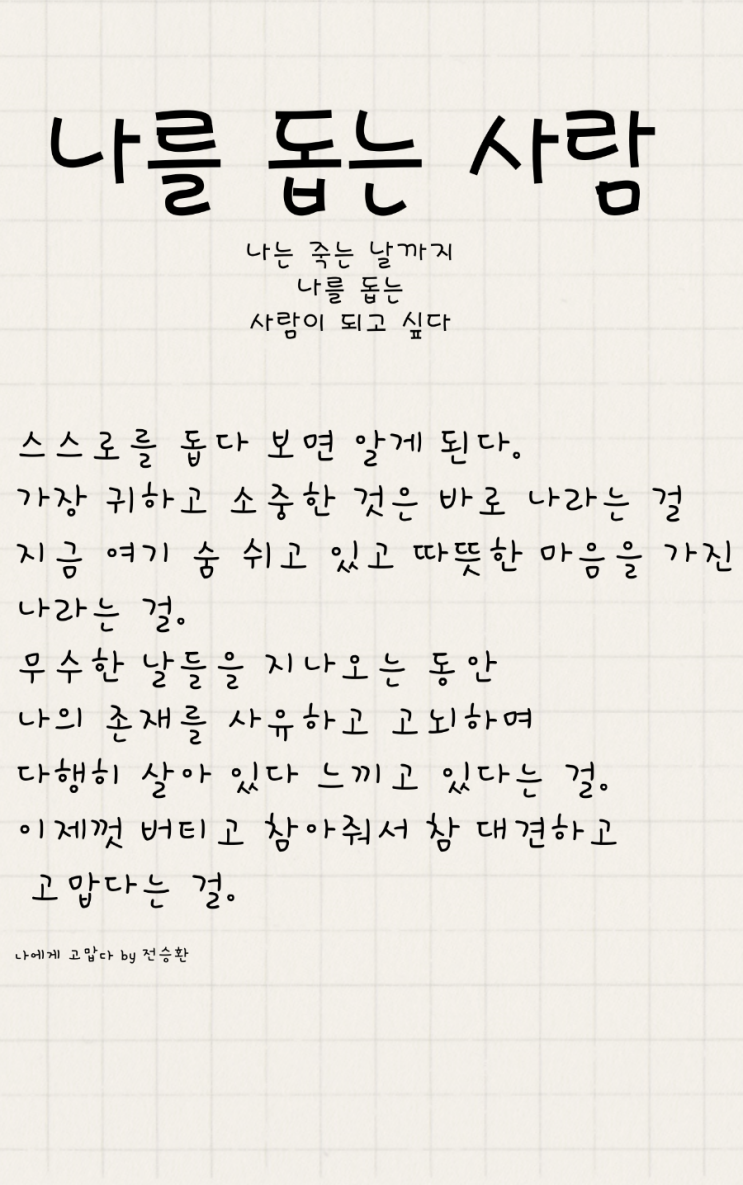 나를 돕는 사람
나는 죽는 날까지
나를 돕는
사람이 되고 싶다
스스로를 돕다 보면 알게 된다.
가장 귀하고 소중한 것은 바로 나라는 걸
지금 여기 숨 쉬고 있고 따뜻한 마음을 가진
나라는 걸.
무수한 날들을 지나오는 동안
나의 존재를 사유하고 고뇌하며
다행히 살아 있다 느끼고 있다는 걸.
이제껏 버티고 참아줘서 참 대견하고
고맙다는 걸.
나에게 고맙다 by 전승환